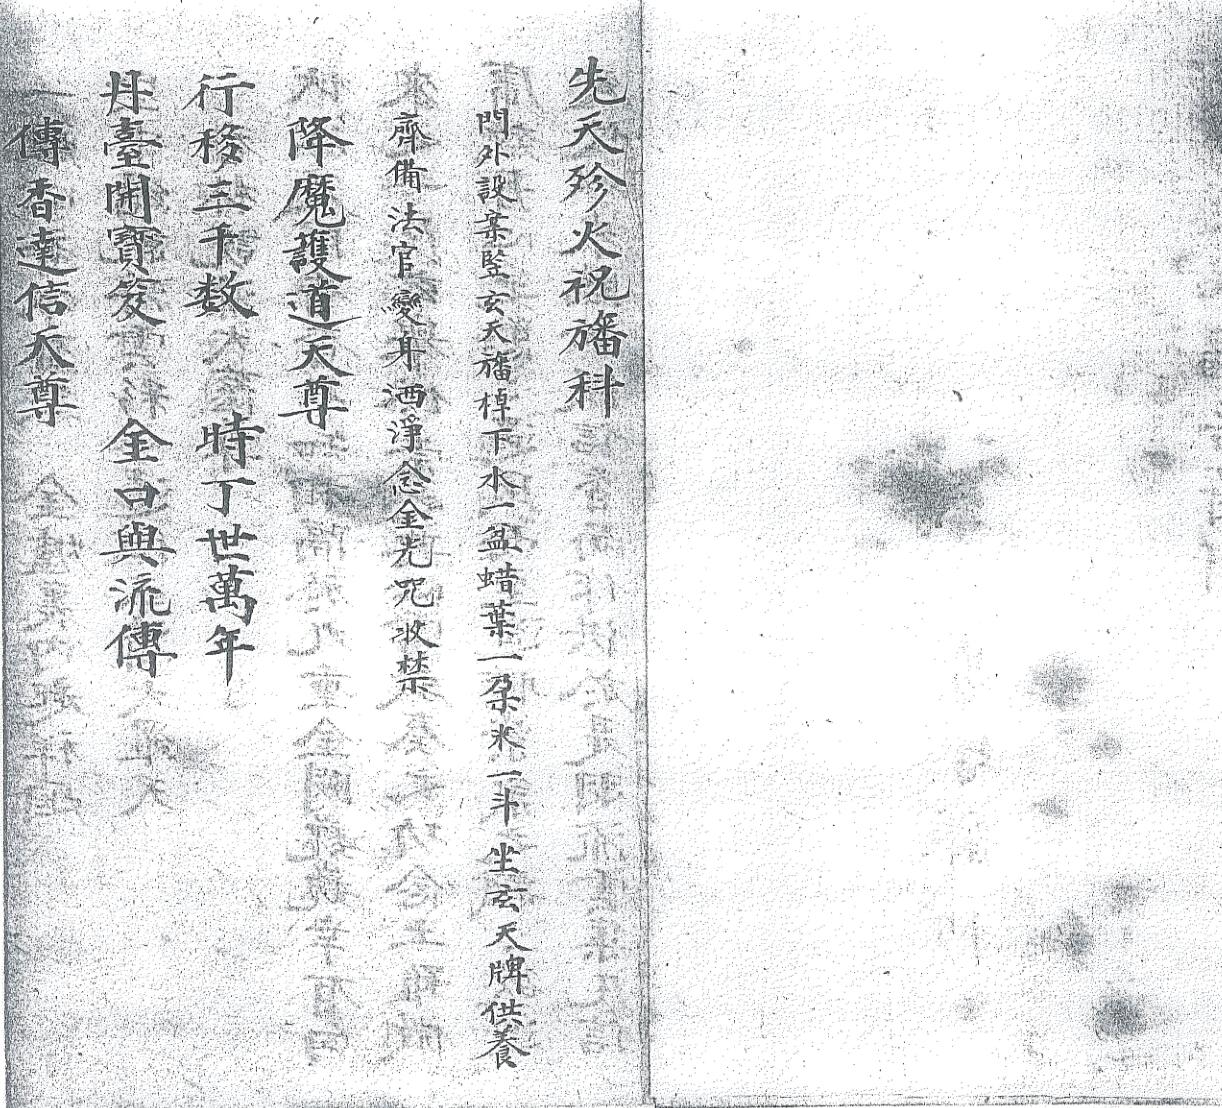 先天殄火祝旛科
門外設案竪玄天旛棹下水一盆蜡葉一朶米一斗坐玄天牌供養
齊備法官變身洒淨念金光咒收禁
降魔護道天尊
行移三千数　時丁世萬年
丹臺開寶笈　金口與流傳
傳香達信天尊